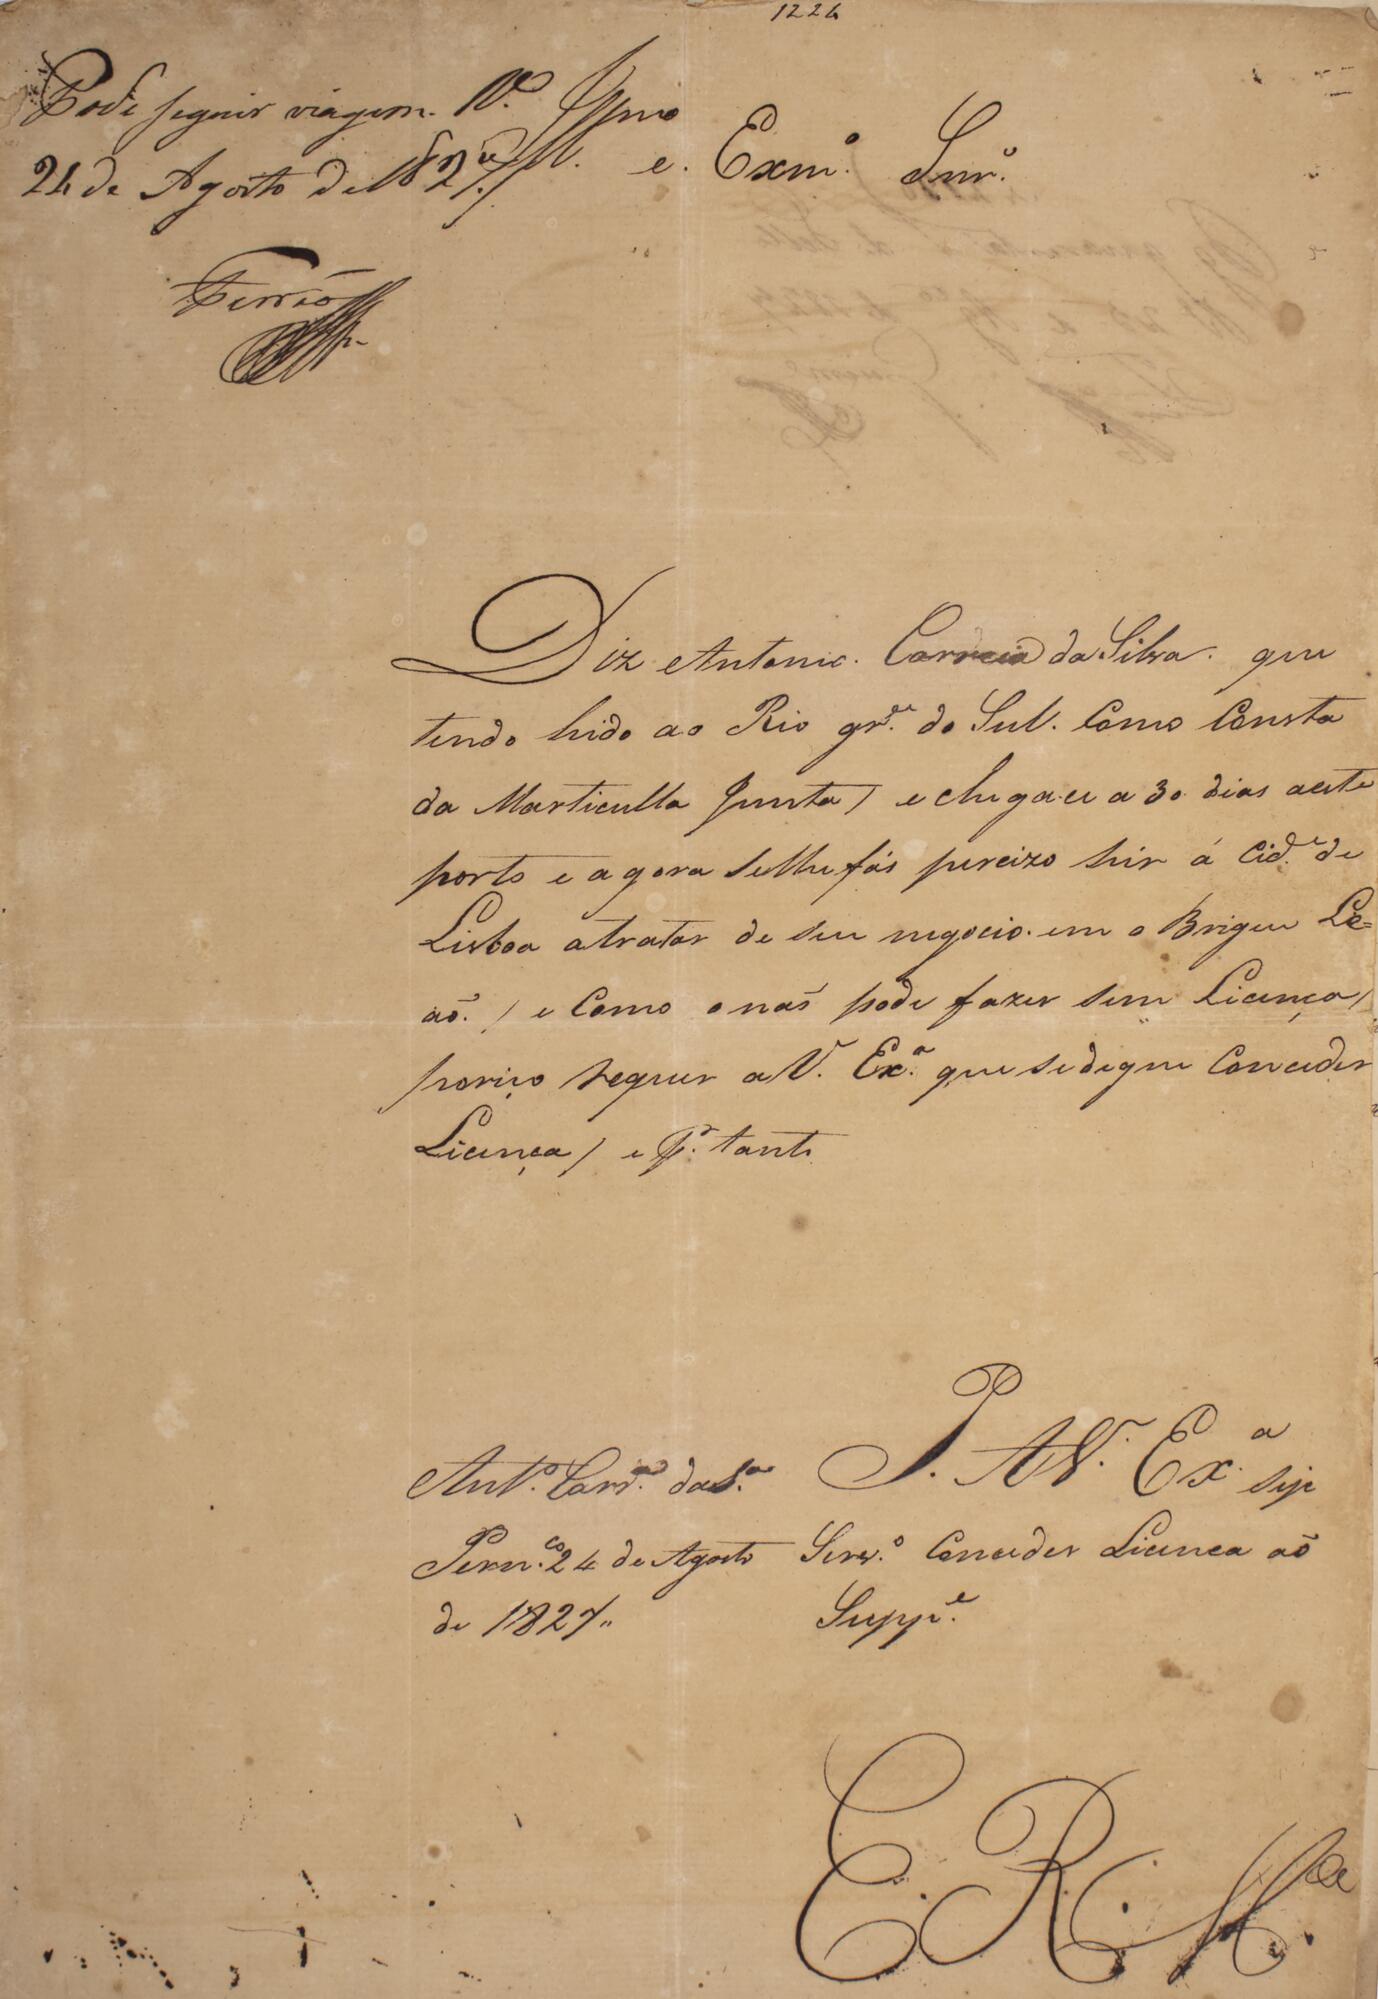 1224
Pode seguir viagem. R.e
24 de Agosto de 1827.
Ferrão
Exm.o Snr.
Diz Antonio Correia da Silva. que
tendo hido ao Rio gr.de do Sul. Como Consta
da Marticulla Junta / e chegace a 30 dias aeste
porto e agora selhe fás percizo hir á Cid.e de
Lisboa atratar de seu negocio. em o Brigue Le=
aõ. / e Como onaõ pode fazer sem Licença /
poriço requer a V. Ex.a que sedegne Conceder
Licença / e P.r tanto
P. A V. Ex.a sije
Serv.o Conceder Licenca aõ
Supp.e
Ant.o Corr.a da S.a
Pern.co 24 de Agosto
de 1827.
E. R. M.ce